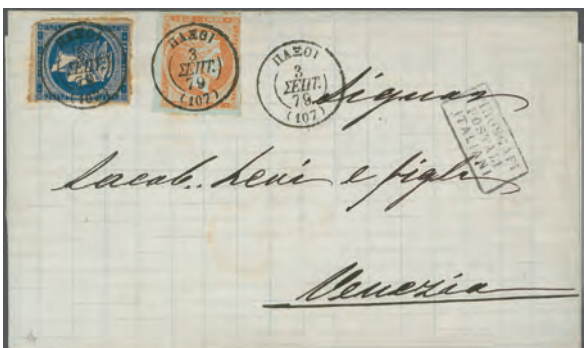 ΠΑΞΟΙ
3
ΣΕΠΤ.
79
(107)
ΠΑΞΟΙ
3
ΣΕΠΤ.
79
(107)
ΠΑΞΟΙ
3
ΣΕΠΤ.
79
(107)
Signor
PIROSCAFI
POSTALI
ITALIANI
Jacob. Levi e figli
Venezia